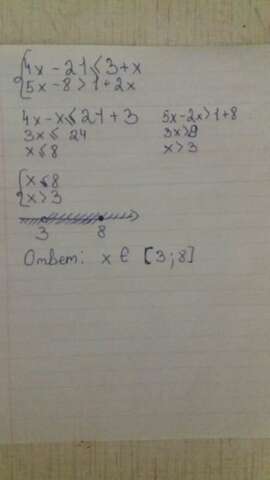 {4x - 21 ⩽ 3 + x
5x - 8 > 1 + 2x
4x - x ⩽ 21 + 3 5x - 2x > 1 + 8
3x ⩽ 24 3x > 9
x ⩽ 8 x > 3
{x ⩽ 8
x > 3
3 8
Ответ: x ∈ [3; 8]